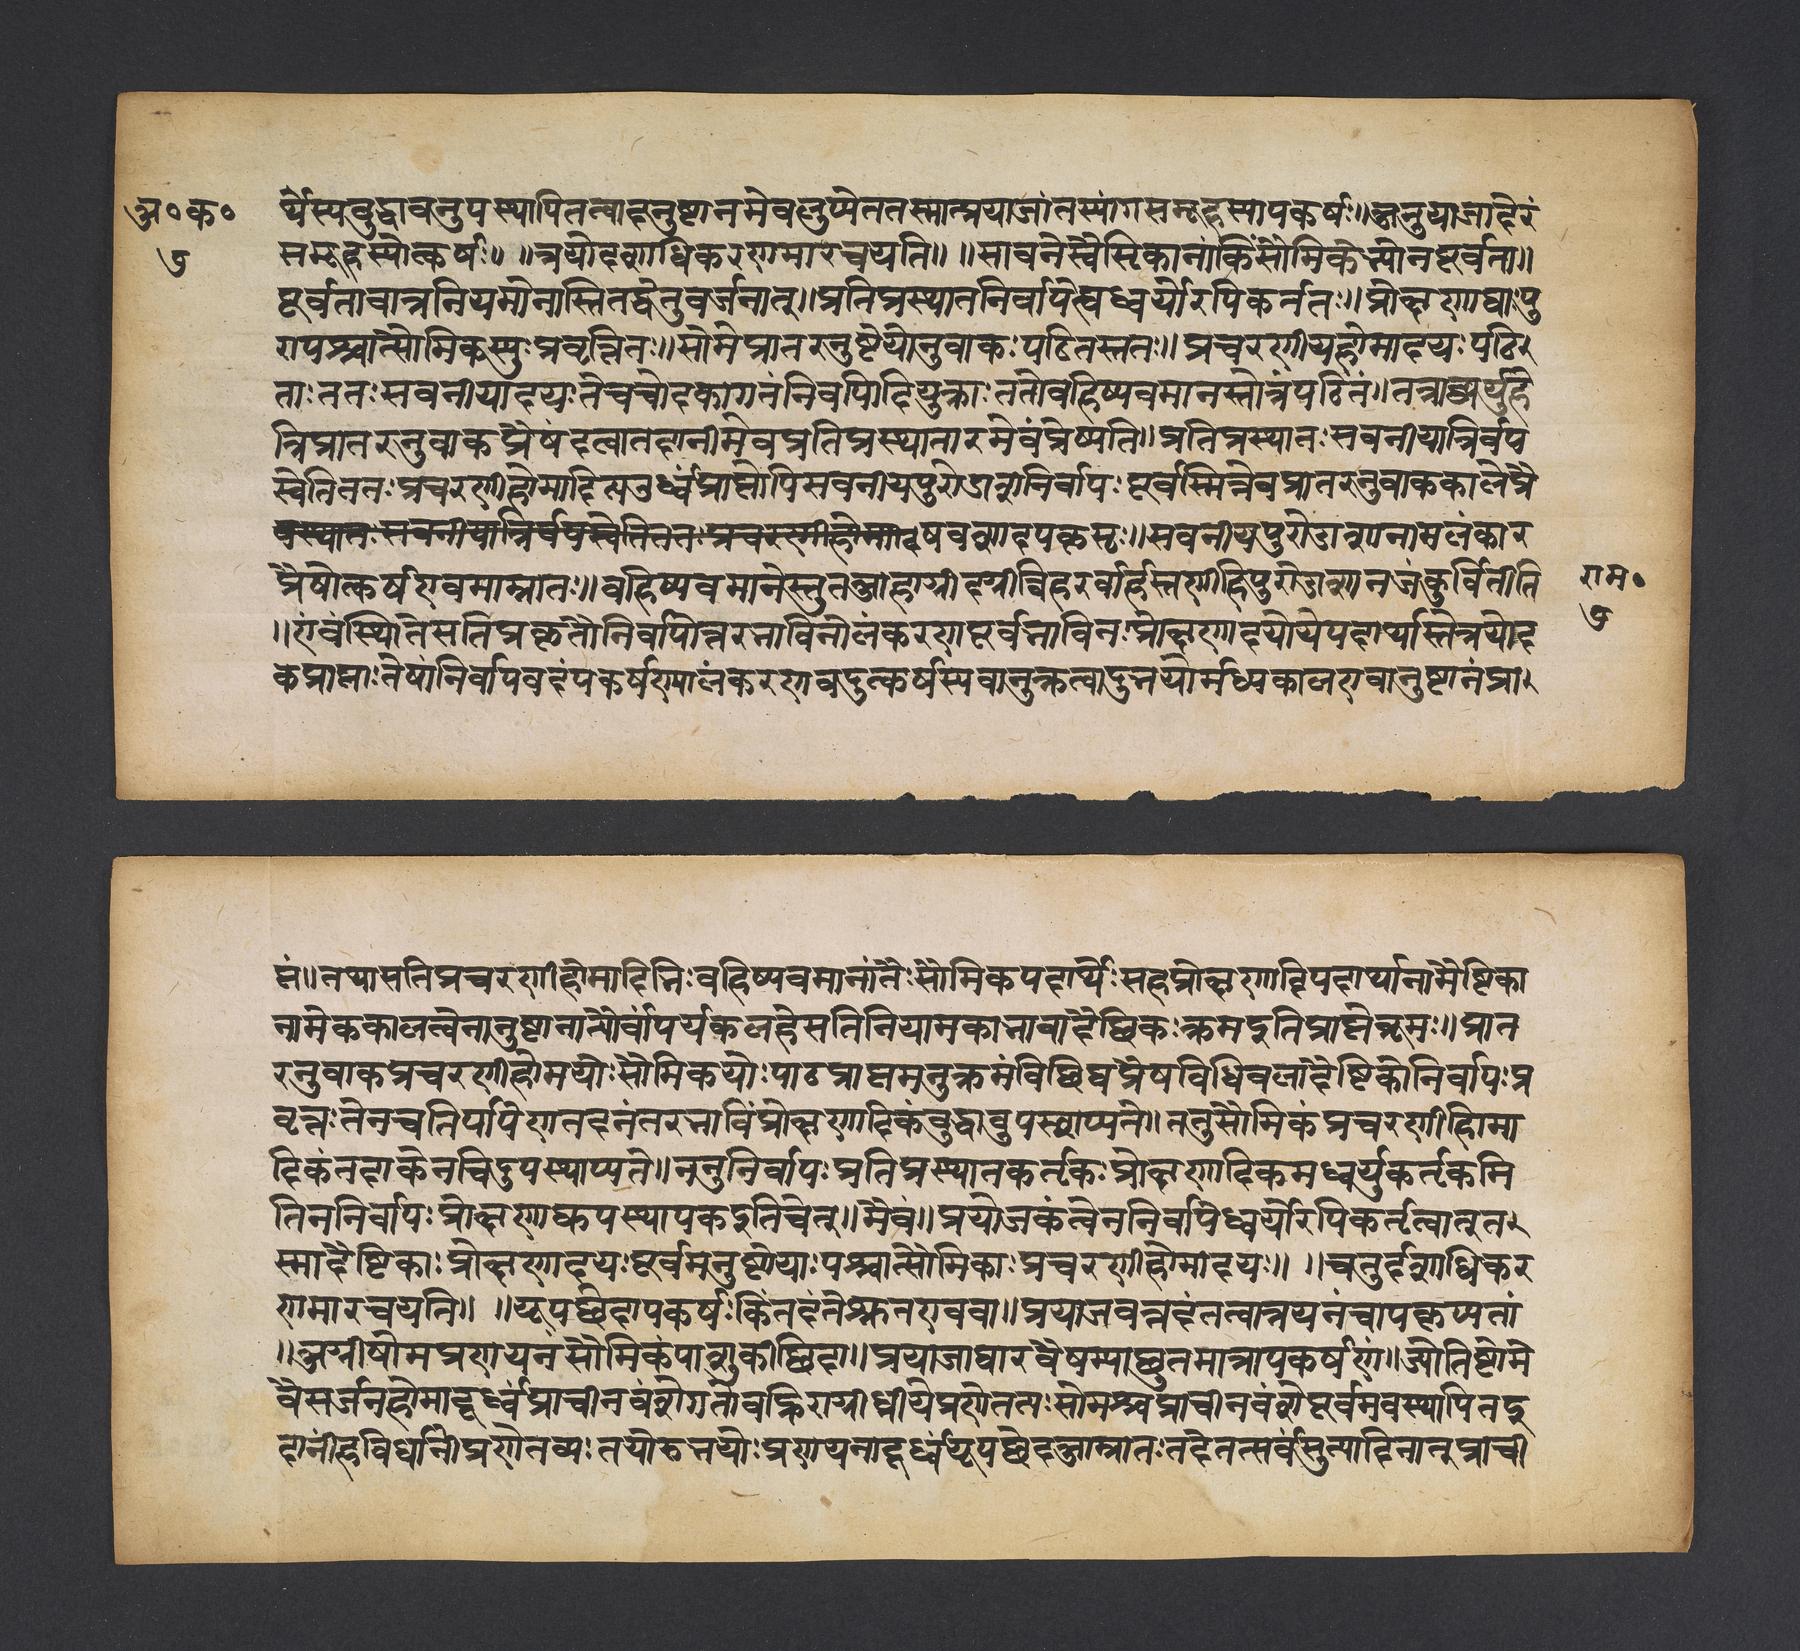 अ॰क॰
७
र्थस्यबुद्धावनुपस्थापितत्वादनुष्टानमेवलुप्येततस्मात्प्रयाजांतस्यांगसमूहस्यापकर्षः॥अनुयाजादेरं
समूहस्योत्कर्षः॥ ॥त्रयोदशाधिकरणमारचयति॥ ॥सावनेस्वैष्टिकानांकिंसौमिकेभ्योनपूर्वता॥
पूर्वतावात्रनियमोनास्तितद्धेतुवर्जनात्॥प्रतिप्रस्थाननिर्वापेस्वध्वर्योरपिकर्तृतः॥प्रोक्षणाद्याःपु
रापश्चात्सौमिकस्युःप्रवृत्तितः॥सोमेप्रातरनुष्टेयोनुवाकःपठितस्ततः॥प्रचरणीयहोमादयःपठि
ताःततःसवनीयादयःतेचचोदकागतंनिर्वापादियुक्ताःततोवहिष्पवमानस्तोत्रंपठितं॥तत्राध्वर्युर्हि
त्रिप्रातरनुवाकप्रैषंदत्वातदानीमेवप्रतिप्रस्थातारमेवंप्रेष्यति॥प्रतिप्रस्थातःसवनीयान्निर्वप
स्वेतिततःप्रचरणीहोमादिभ्यऊर्ध्वंप्राप्तोपिसवनीयपुरोडाशनिर्वापःपूर्वस्मिन्नेवप्रातरनुवाककालेप्रै
षवशादपकृष्टः॥सवनीयपुरोडाशानामलंकार
प्रैषोत्कर्षएवमाम्नातः॥वहिष्पवमानेस्तुतआहाग्नीदग्नीन्विहरवर्हिस्तृणीहिपुरोडाशानलंकुर्वितीति
राम॰
७
॥एवंस्थितेसतिप्रकृतौनिर्वापोत्तरभाविनोलंकरणपूर्वभाविनःप्रोक्षणादयोयेपदार्थास्तेत्रचोद
केप्राप्ताःतेषांनिर्वापवदपकर्षस्यालंकरणवदुत्कर्षस्यवानुक्तत्वादुभयोर्मध्यकालएवानुष्टानंप्रा
प्तं॥तथासतिप्रचरणीहोमादिभिःवहिष्पवमानांतैःसौमिकपदार्थैःसहप्रोक्षणादिपदार्थानामैष्टिका
नामेककालत्वेनानुष्टानात्पौर्वापर्यकलहेसतिनियामकाभावादैच्छिकःक्रमइतिप्राप्तेब्रूमः॥प्रात
रनुवाकप्रचरणीहोमयोःसौमिकयोःपाठप्राप्तमनुक्रमंविच्छिद्यप्रैषविधिवलादैष्टिकोनिर्वापःप्र
वृत्तःतेनचनिर्वापेणतदनंतरभाविप्रोक्षणादिकंबुद्धावुपस्थाप्यते॥ननुसौमिकंप्रचरणीहोमा
दिकंतदाकेनचिदुपस्थाप्यते॥ननुनिर्वापःप्रतिप्रस्थातकर्तृकःप्रोक्षणादिकमध्वर्युकर्तृकमि
तिननिर्वापःप्रोक्षणाद्युपस्थापकइतिचेत्॥मैवं॥प्रयोजकत्वेननिर्वापेध्वर्योरपिकर्तृत्वात्त
स्मादैष्टिकाःप्रोक्षणादयःपूर्वमनुष्टेयाःपश्चात्सौमिकाःप्रचरणीहोमादयः॥ ॥चतुर्दशाधिकर
णमारचयति॥ ॥यूपच्छेदापकर्षःकिंतदंतेश्रुतएववा॥प्रयाजवत्तदंतत्वात्प्रयनंचापकृष्यतां
॥अग्नीषोमप्रणयनंसौमिकंपाशुकीछिदा॥प्रयाजाघारवैषम्यात्छुतमात्रापकर्षणं॥ज्योतिष्टोमे
वैसर्जनहोमादूर्ध्वंप्राचीनवंशेगतोवह्निराग्नीध्रीयेप्रणेतव्यःसोमश्चप्राचीनवंशेपूर्वमवस्थापितइ
दानींहविर्धानेप्रणेतव्यःतयोरुभयोःप्रणयनादूर्ध्वंयूपच्छेदआम्नातःतदेतत्सर्वंसुत्यादिनात्प्राची